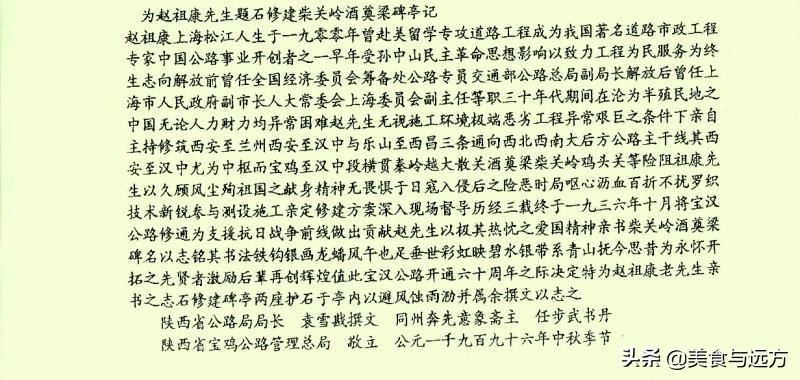 为赵祖康先生题石修建柴关岭酒奠梁碑亭记
赵祖康上海松江人生于一九零零年曾赴美留学专攻道路工程成为我国著名道路市政工程
专家中国公路事业开创者之一早年受孙中山民主革命思想影响以致力工程为民服务为终
生志向解放前曾任全国经济委员会筹备处公路专员交通部公路总局副局长解放后曾任上
海市人民政府副市长人大常委会上海委员会副主任等职三十年代期间在沦为半殖民地之
中国无论人力财力均异常困难赵先生无视施工环境极端恶劣工程异常艰巨之条件下亲自
主持修筑西安至兰州西安至汉中与乐山至西昌三条通向西北西南大后方公路主干线其西
安至汉中尤为中枢而宝鸡至汉中段横贯秦岭越大散关酒奠梁柴关岭鸡头关等险阻祖康先
生以久顾风尘殉祖国之献身精神无畏惧于日寇入侵后之险恶时局呕心沥血百折不扰罗织
技术新锐参与测设施工亲定修建方案深入现场督导历经三载终于一九三六年十月将宝汉
公路修通为支援抗日战争前线做出贡献赵先生以极其热忱之爱国精神亲书柴关岭酒奠梁
碑名以志铭其书法铁钩银画龙蟠风午也足垂世彩虹映碧水银带系青山抚今思昔为永怀开
拓之先贤者激励后辈再创辉煌值此宝汉公路开通六十周年之际决定特为赵祖康老先生亲
书之志石修建碑亭两座护石于亭内以避风蚀雨泐并属余撰文以志之
陕西省公路局局长 袁雪戡撰文 同州奔先意象斋主 任步武书丹
陕西省宝鸡公路管理总局 敬立 公元一千九百九十六年中秋季节
头条 @美食与远方